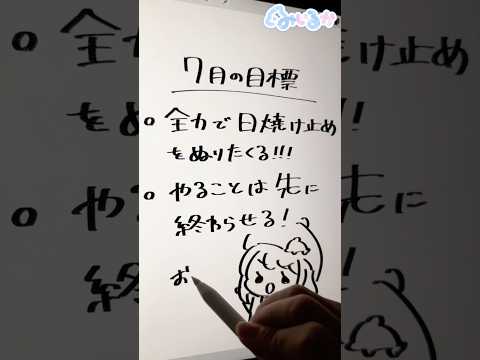 7月の目標
全力で日焼け止め
をぬりたくる!!!
やることは先に
終わらせる!
お